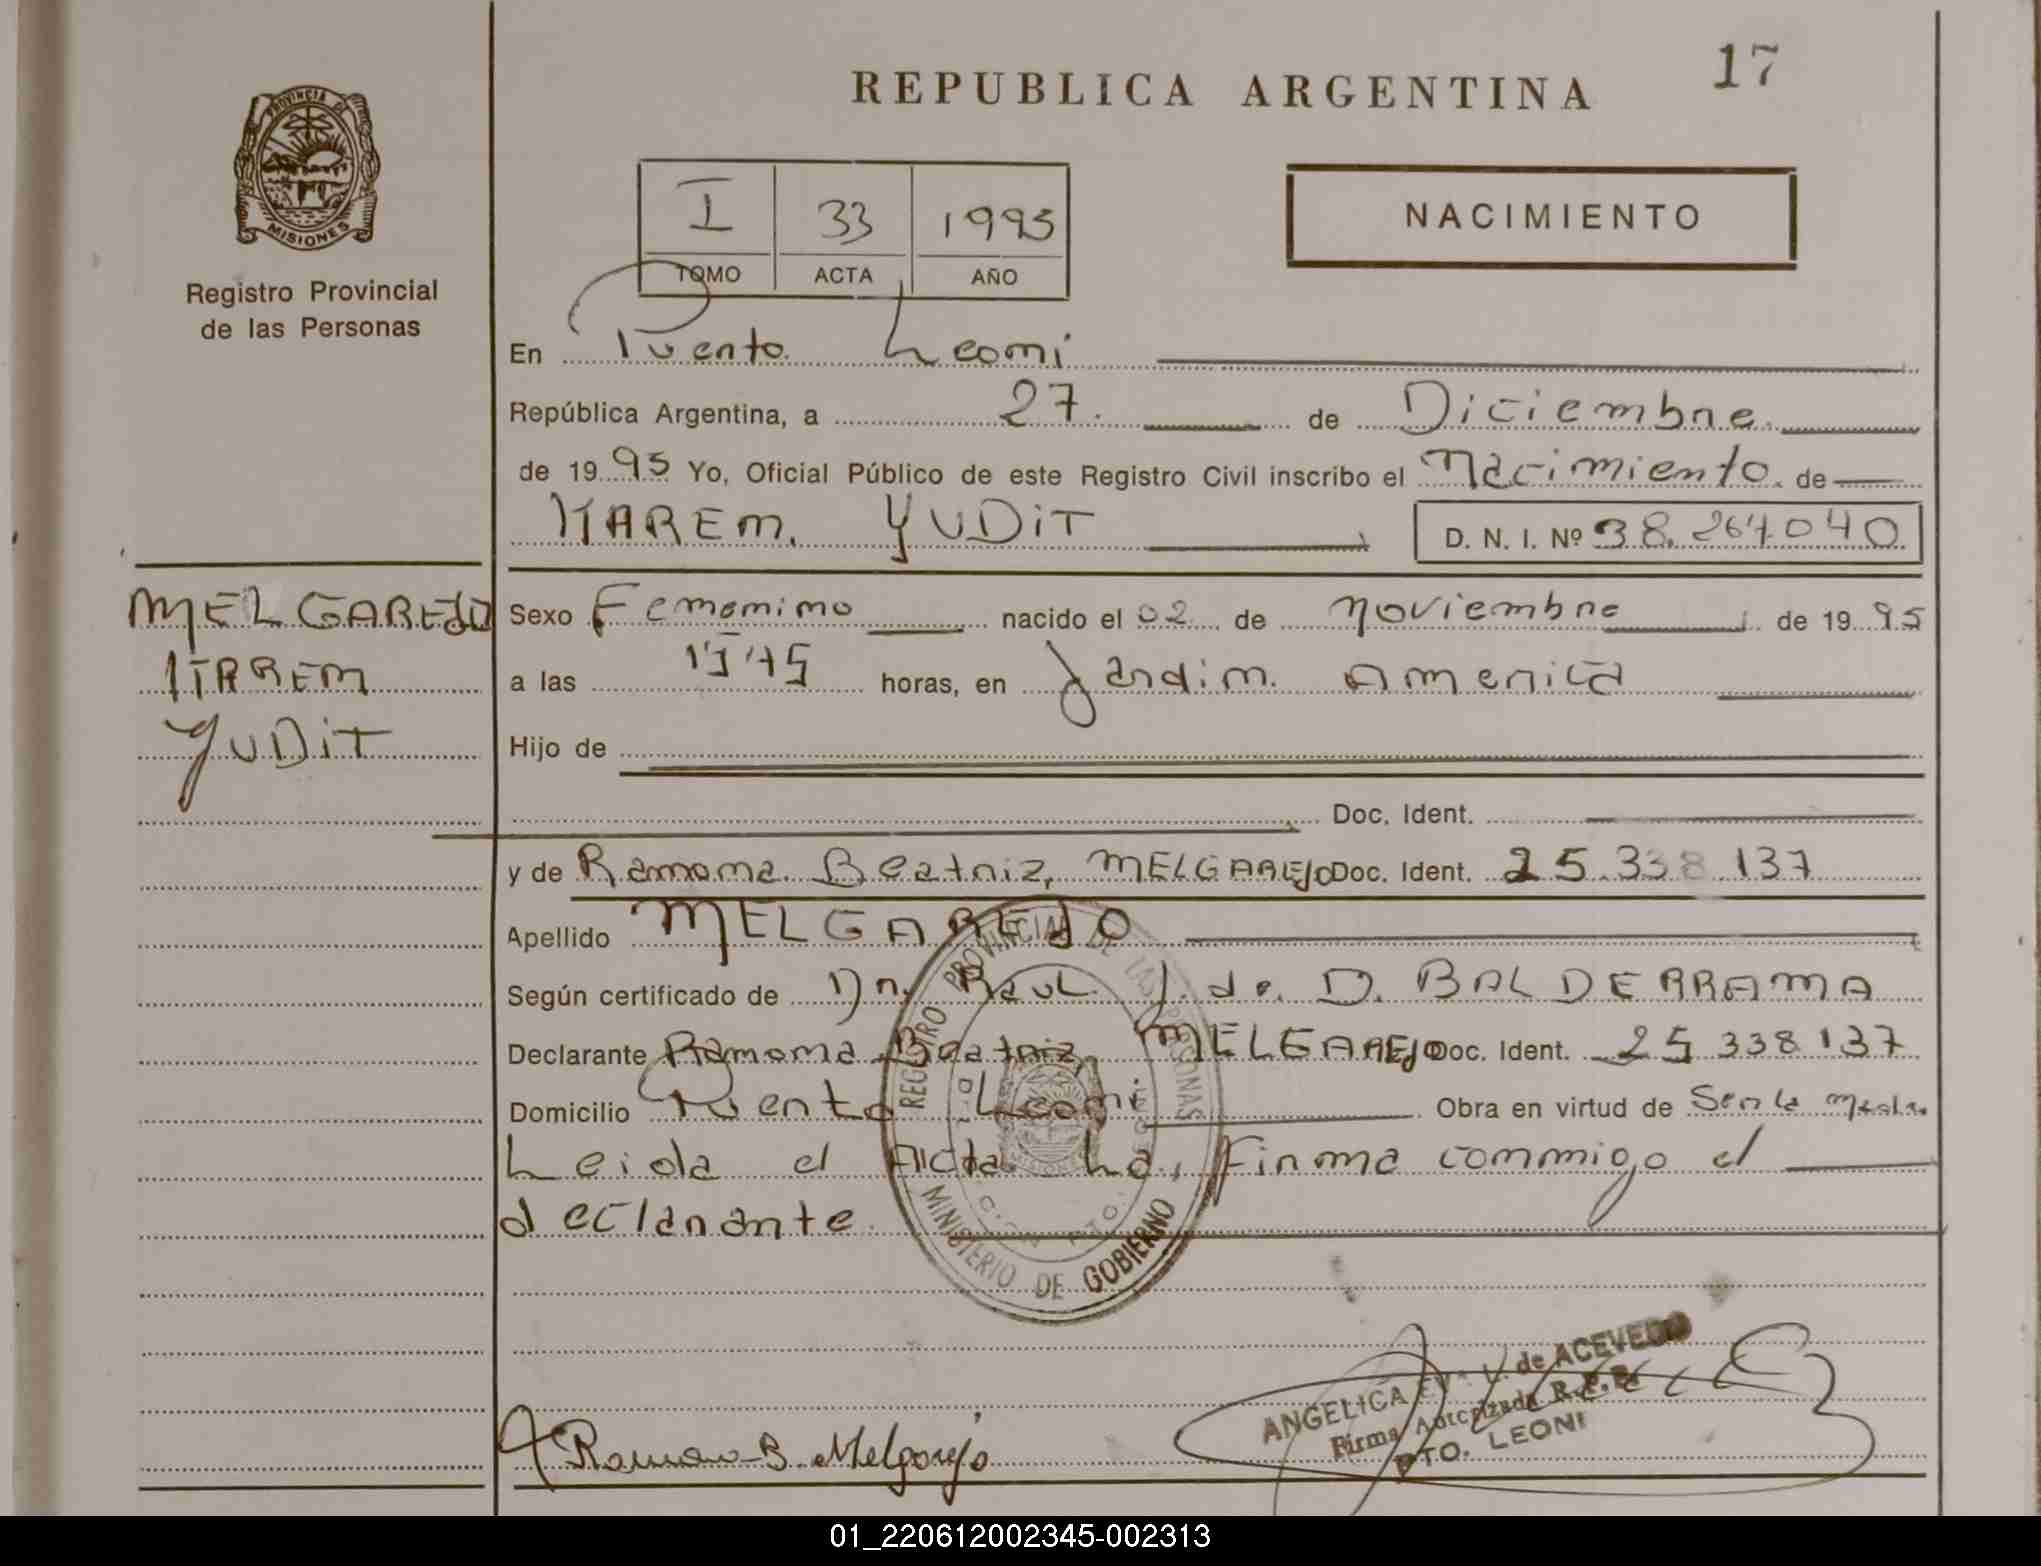 17
REPUBLICA ARGENTINA
PROVINCIA DE
MISIONES
Registro Provincial
de las Personas
I 33 1995
TOMO ACTA AÑO
NACIMIENTO
En Puerto Leoni
República Argentina, a 27. de Diciembre.
de 1995 Yo, Oficial Público de este Registro Civil inscribo el Nacimiento. de
KAREM, YUDiT D. N. I. Nº 38.264.040
MELGAREJO
KAREM
YUDiT
Sexo Femenino nacido el 02 de Noviembre de 1995
a las horas, en Jardin America
Hijo de
Doc. Ident.
y de Ramona Beatriz, MELGAREJO Doc. Ident. 25.338 137
Apellido MELGAREJO
Según certificado de Dr. Raul J. de D. BALDERRAMA
Declarante Ramona Beatriz, MELGAREJO Doc. Ident. 25 338 137
Domicilio Puerto Leoni Obra en virtud de Ser la madre
Leida el Acta La, Firma conmigo el
declarante.
REGISTRO PROVINCIAL DE LAS PERSONAS
MINISTERIO DE GOBIERNO
Ramona B. Melgarejo
ANGELICA V. de ACEVEDO
Firma Autorizada R.P.P.
PTO. LEONI
01_220612002345-002313